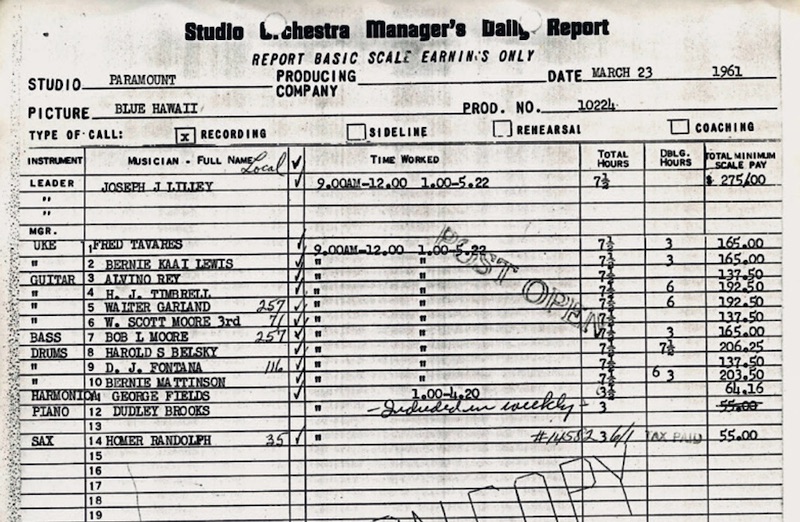 Studio Orchestra Manager's Daily Report
REPORT BASIC SCALE EARNINGS ONLY
STUDIO PARAMOUNT PRODUCING COMPANY DATE MARCH 23 1961
PICTURE BLUE HAWAII PROD. NO. 10224
TYPE OF CALL: x RECORDING SIDELINE REHEARSAL COACHING
INSTRUMENT MUSICIAN - FULL NAME Local ✓ TIME WORKED TOTAL HOURS DBLG. HOURS TOTAL MINIMUM SCALE PAY
LEADER JOSEPH J LILLEY 9.00AM-12.00 1.00-5.22 7½ $ 275/00
"
"
MGR.
UKE 1 FRED TAVARES ✓ 9.00AM-12.00 1.00-5.22 7½ 3 165.00
" 2 BERNIE KAAI LEWIS ✓ " " 7½ 3 165.00
GUITAR 3 ALVINO REY ✓ " " 7½ 137.50
" 4 H. J. TIMBRELL ✓ " " 7½ 6 192.50
" 5 WALTER GARLAND 257 ✓ " " 7½ 6 192.50
" 6 W. SCOTT MOORE 3rd 71 ✓ " " 7½ 137.50
BASS 7 BOB L MOORE 257 ✓ " " 7½ 3 165.00
DRUMS 8 HAROLD S BELSKY ✓ " " 7½ 7½ 206.25
" 9 D. J. FONTANA 116 ✓ " " 7½ 137.50
" 10 BERNIE MATTINSON ✓ " " 7½ 6 3 203.50
HARMONICA GEORGE FIELDS ✓ 1.00-4.20 3½ 64.16
PIANO 12 DUDLEY BROOKS " -Included in weekly- 3 55.00
13
SAX 14 HOMER RANDOLPH 35 ✓ " TAX PAID 55.00
15
16
17
18
19
POST OPEN
COPY